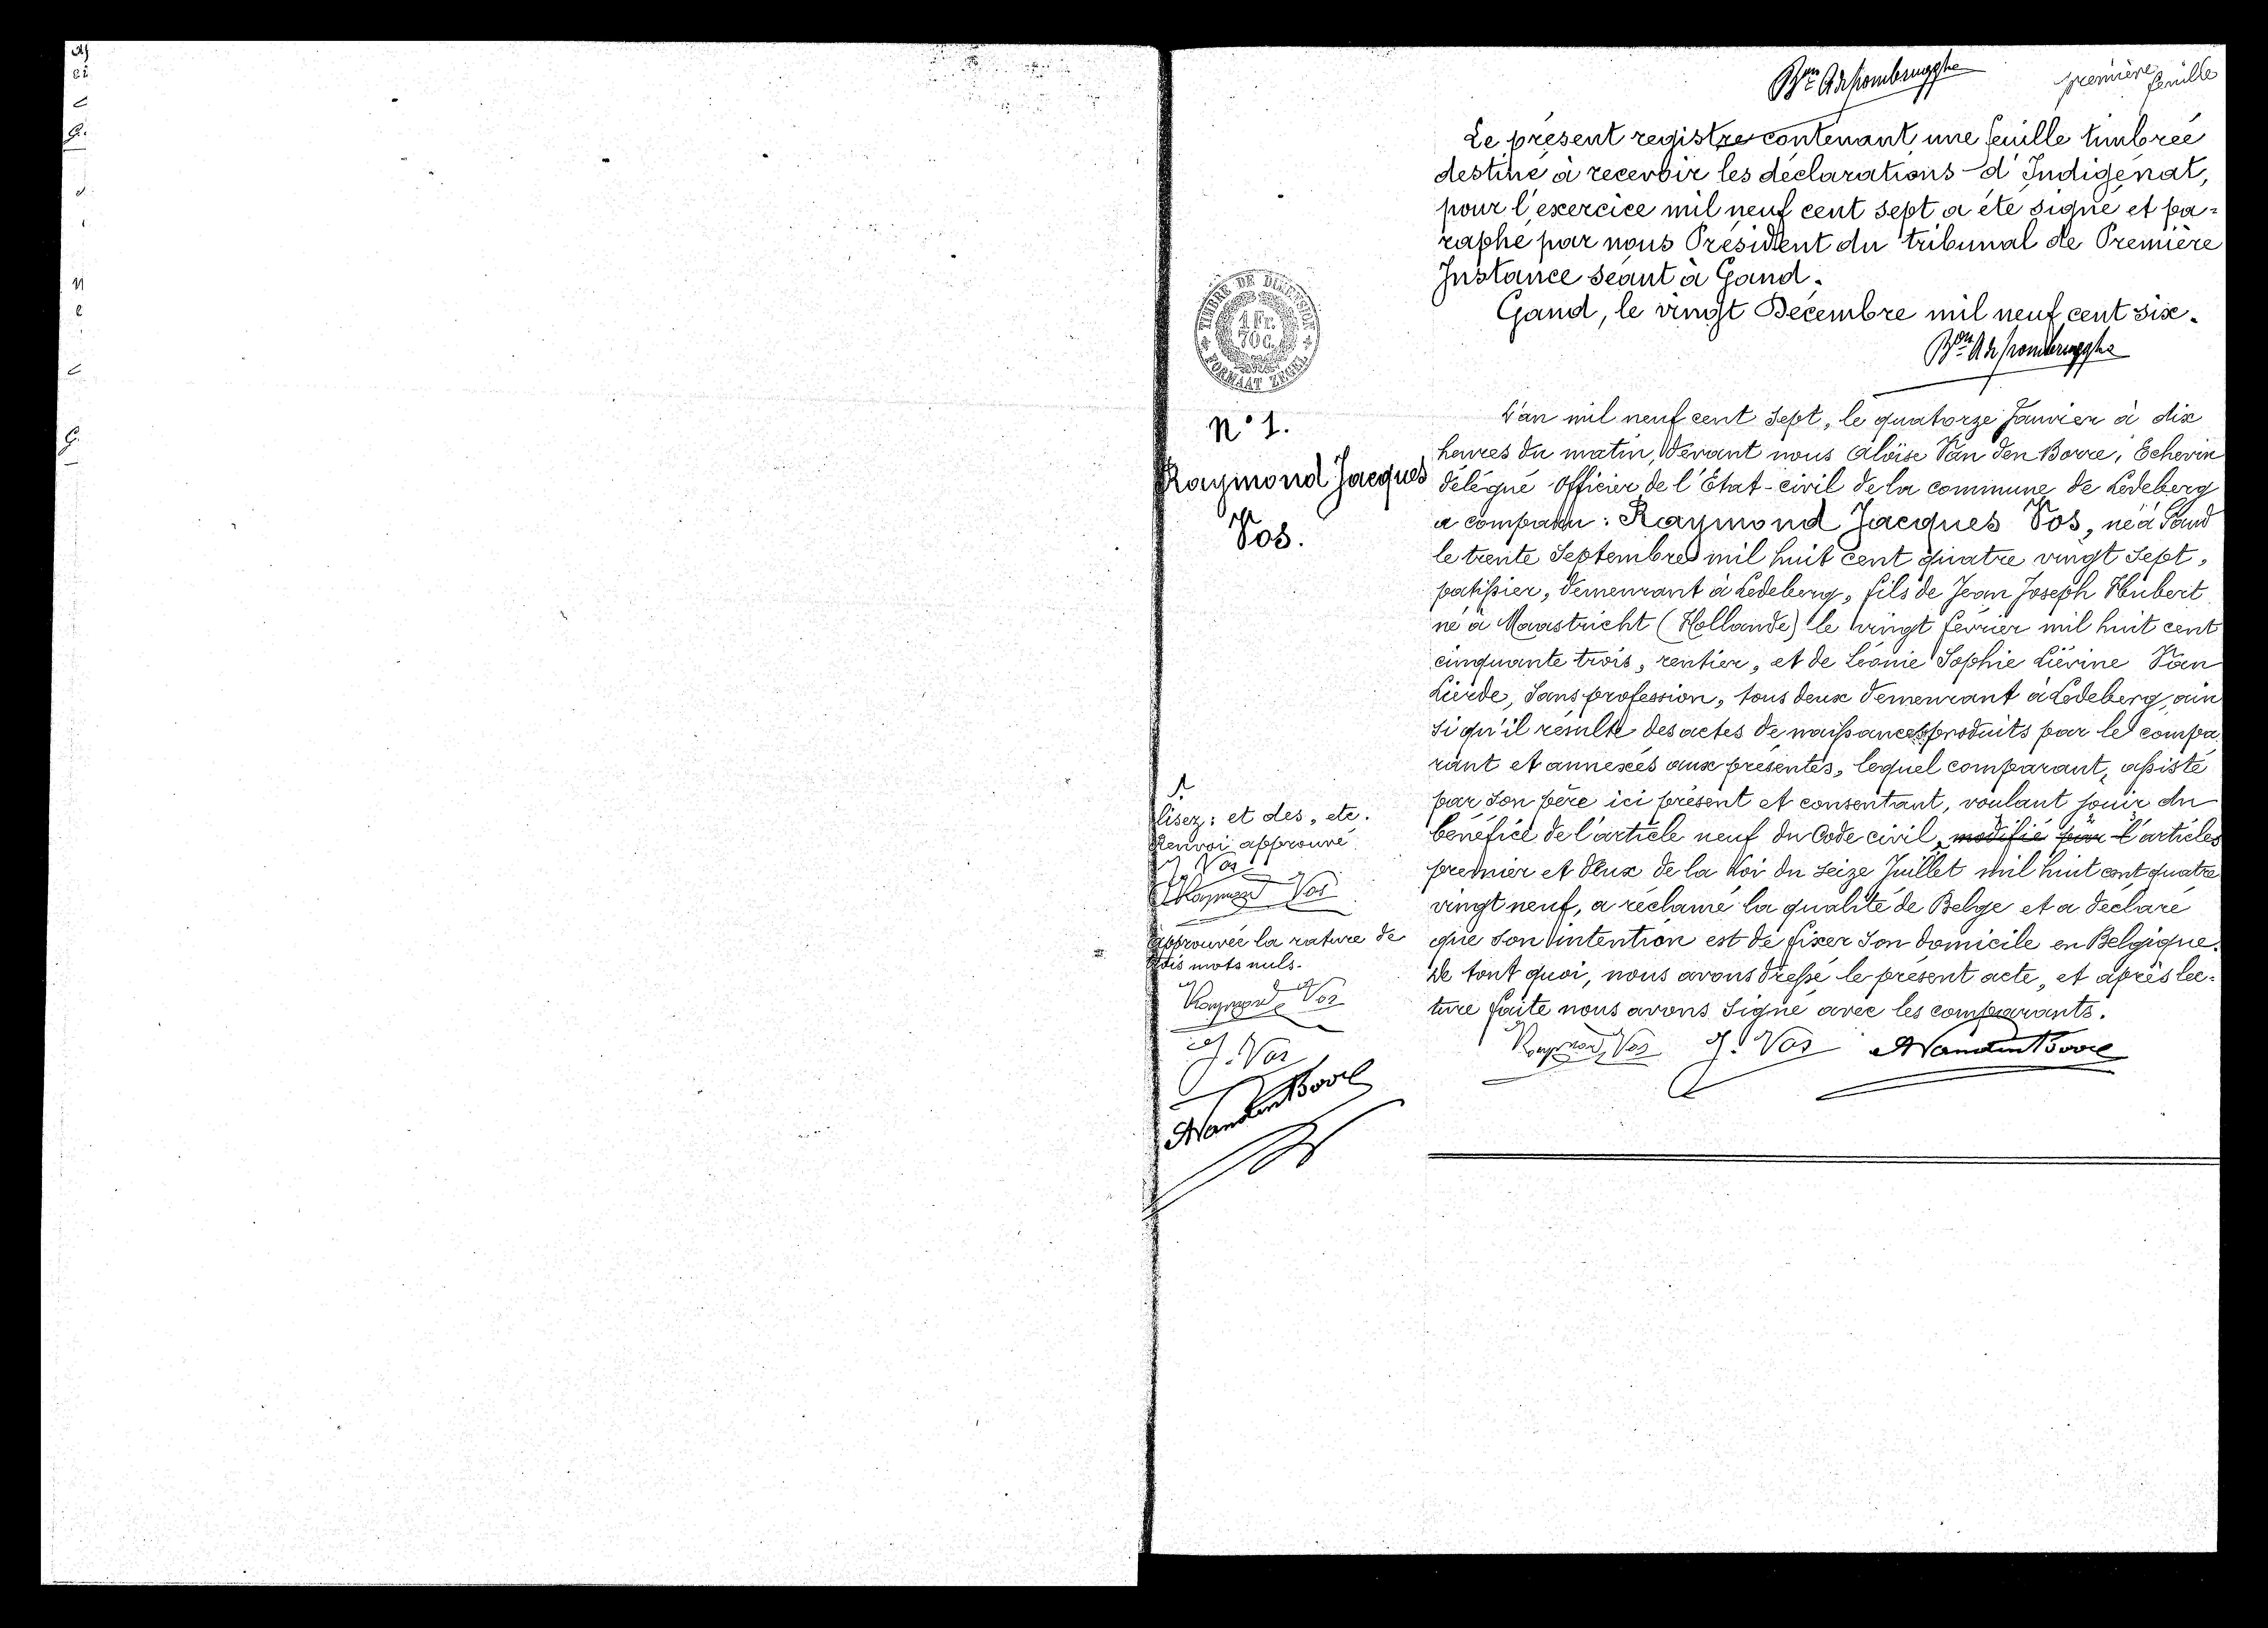 première
feuille
Le présent registre contenant une feuille timbrée
destiné à recevoir les déclarations d'Indigénat,
pour l'exercice mil neuf cent sept a été signé et pa=
raphé par nous Président du tribunal de Première
Instance séant à Gand.
Gand, le vingt Décembre mil neuf cent six.
TIMBRE DE DIMENSION
1 Fr.
70 c.
FORMAAT ZEGEL
N° 1.
Raymond Jacques
Vos.
L'an mil neuf cent sept, le quatorze Janvier à dix
heures du matin, devant nous Aloïse Van den Borre, Echevin
délégué Officier de l'Etat-civil de la commune de Ledeberg
a comparu : Raymond Jacques Vos, né à Gand
le trente Septembre mil huit cent quatre vingt sept,
patissier, demeurant à Ledeberg, fils de Jean Joseph Hubert
né à Maastricht (Hollande) le vingt février mil huit cent
cinquante trois, rentier, et de Léonie Sophie Liévine Van
Lierde, sans profession, tous deux demeurant à Ledeberg, ain
si qu'il résulte des actes de naissances produits par le compa
rant et annexés aux présentes, lequel comparant, assisté
par son père ici présent et consentant, voulant jouir du
bénéfice de l'article neuf du Code civil, modifié par l'articles
premier et deux de la Loi du seize Juillet mil huit cent quatre
vingt neuf, a réclamé la qualité de Belge et a déclaré
que son intention est de fixer son domicile en Belgique.
De tout quoi, nous avons dressé le présent acte, et après lec-
ture faite nous avons signé avec les comparants.
Raymond Vos J. Vos A Vanden Borre
lisez : et des, etc.
Renvoi approuvé
J. Vos
Raymond Vos
Approuvée la rature de
trois mots nuls.
Raymond Vos
J. Vos
A Vanden Borre